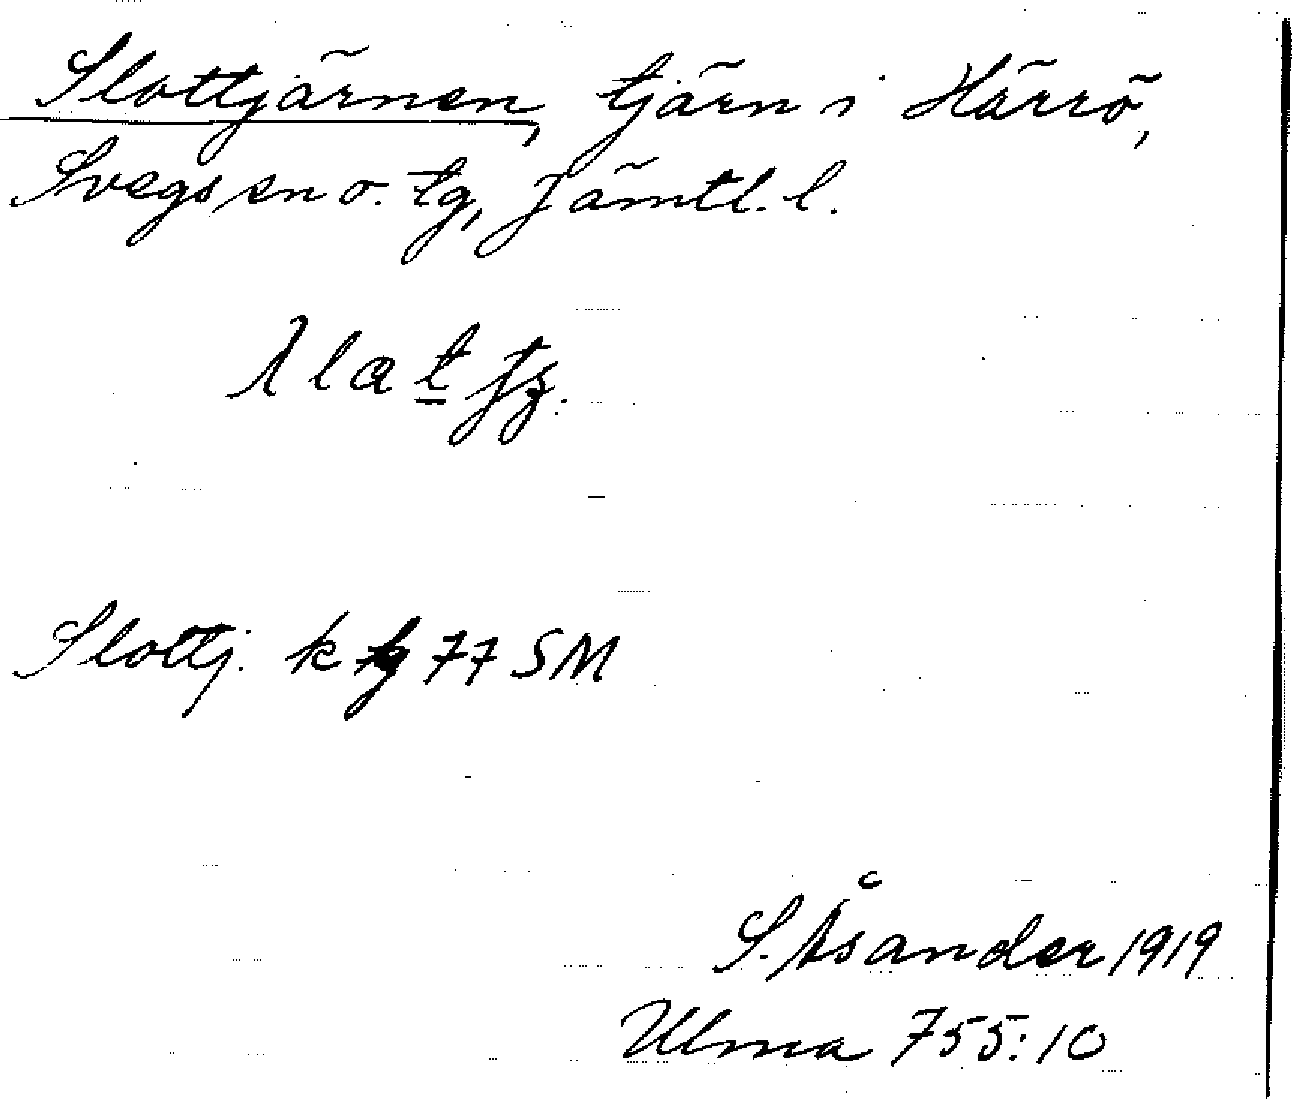 Slottjärnen, tjärn i Härrö,
Svegs sn o. tg, Jämtl. l.
Slottj. k tg 77 SM
S. Åsander 1919
Ulma 755:10